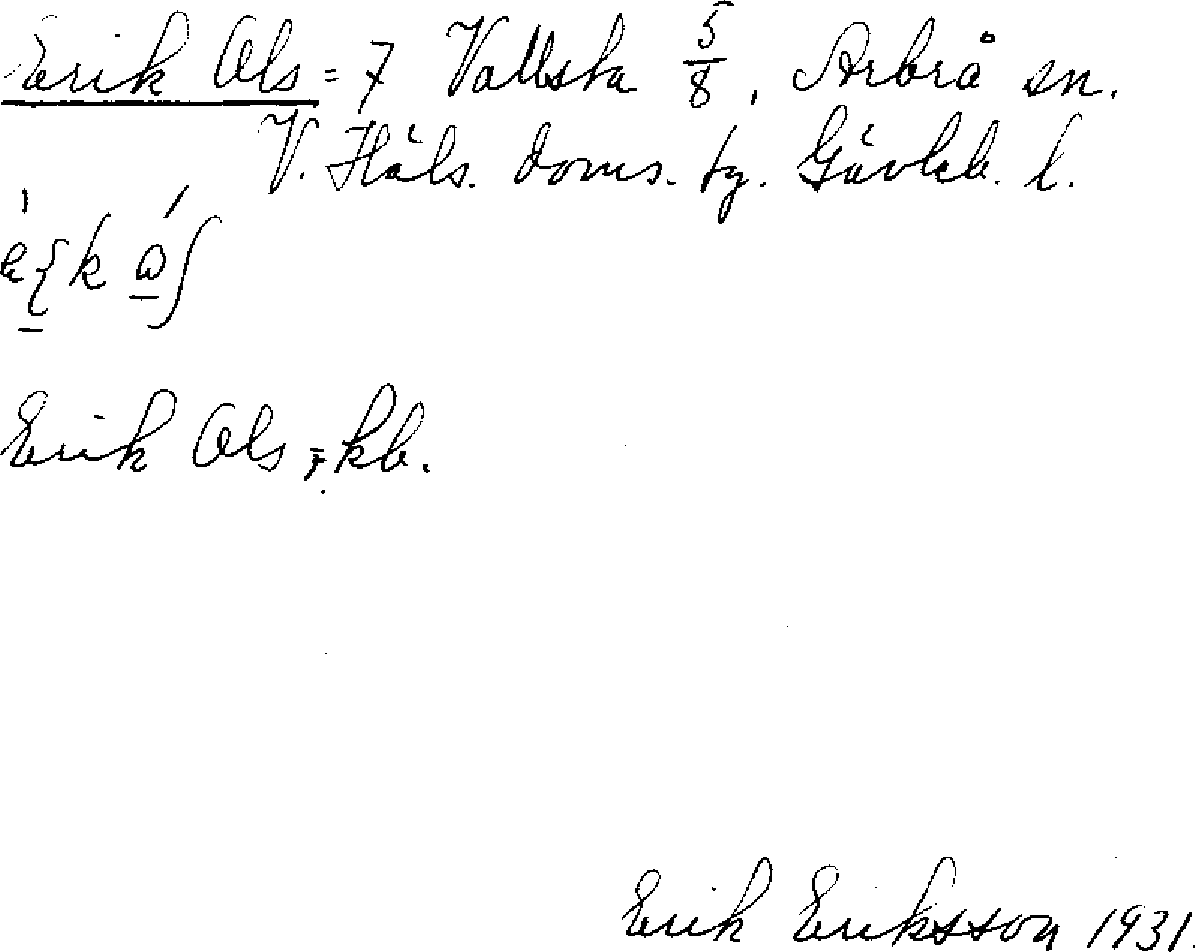 Erik Ols = 7 Vallsta 5/8, Arbrå sn.
V. Häls. doms. fg. Gävleb. l.
Erik Ols = kb.
Erik Eriksson 1931.